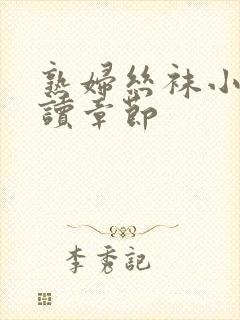 熟婦丝袜小
讀章節
李秀記